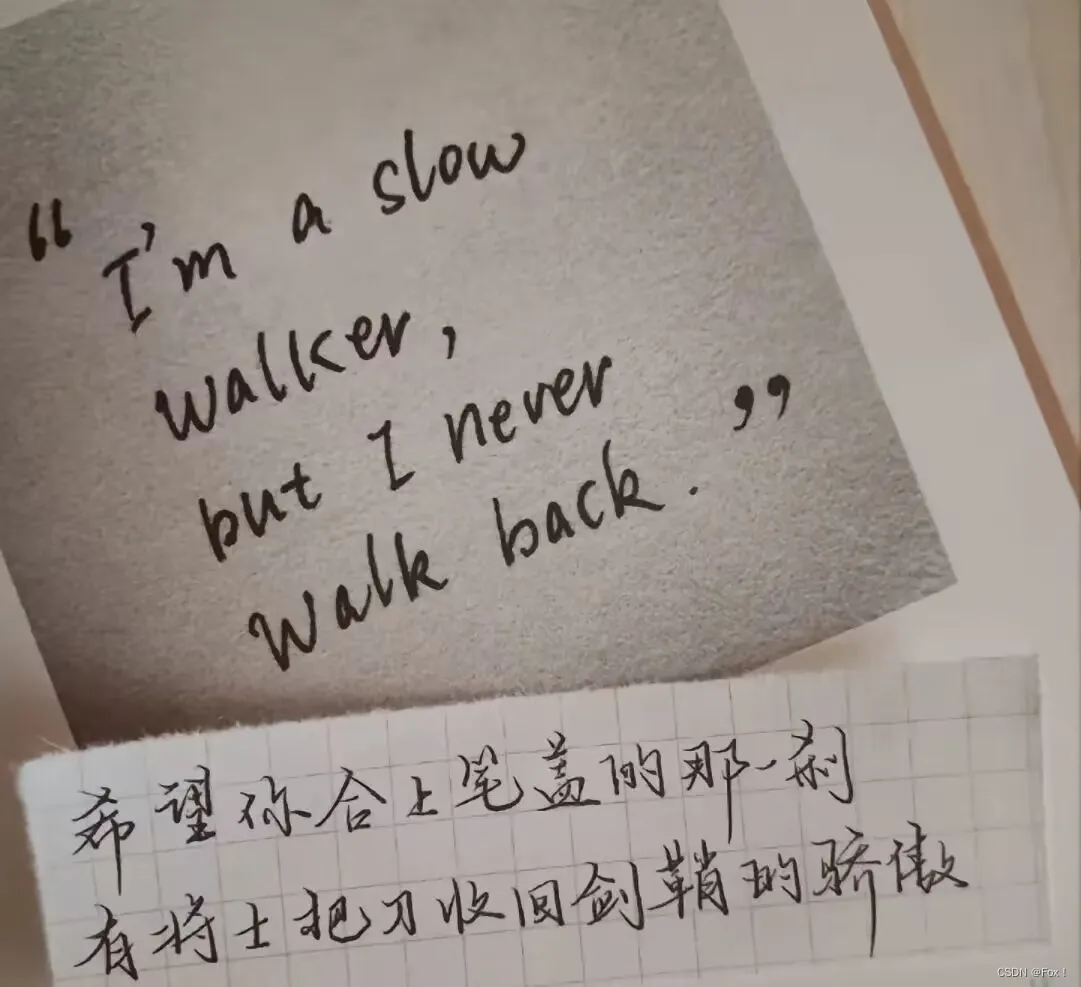 “I'm a slow
walker,
but I never
walk back.”
希望你合上笔盖的那一刹
有将士把刀收回剑鞘的骄傲
CSDN @Fox !